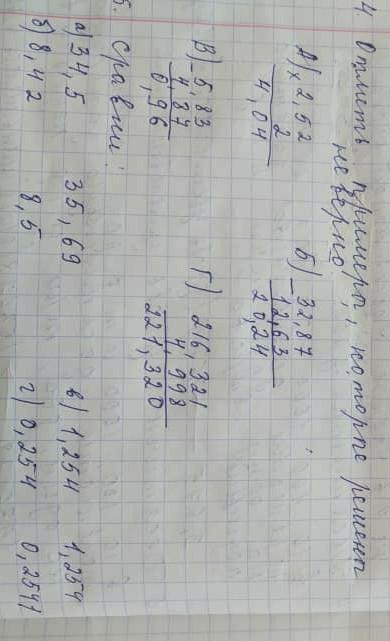 4. Отметь примеры, которые решены
неверно.
А) × 2,52
2
4,04
Б) − 32,87
12,63
20,24
В) − 5,83
4,87
0,96
Г) 216,321
4,998
221,320
5. Сравни:
а) 34,5 35,69
б) 8,42 8,5
в) 1,254 1,254
г) 0,254 0,2541